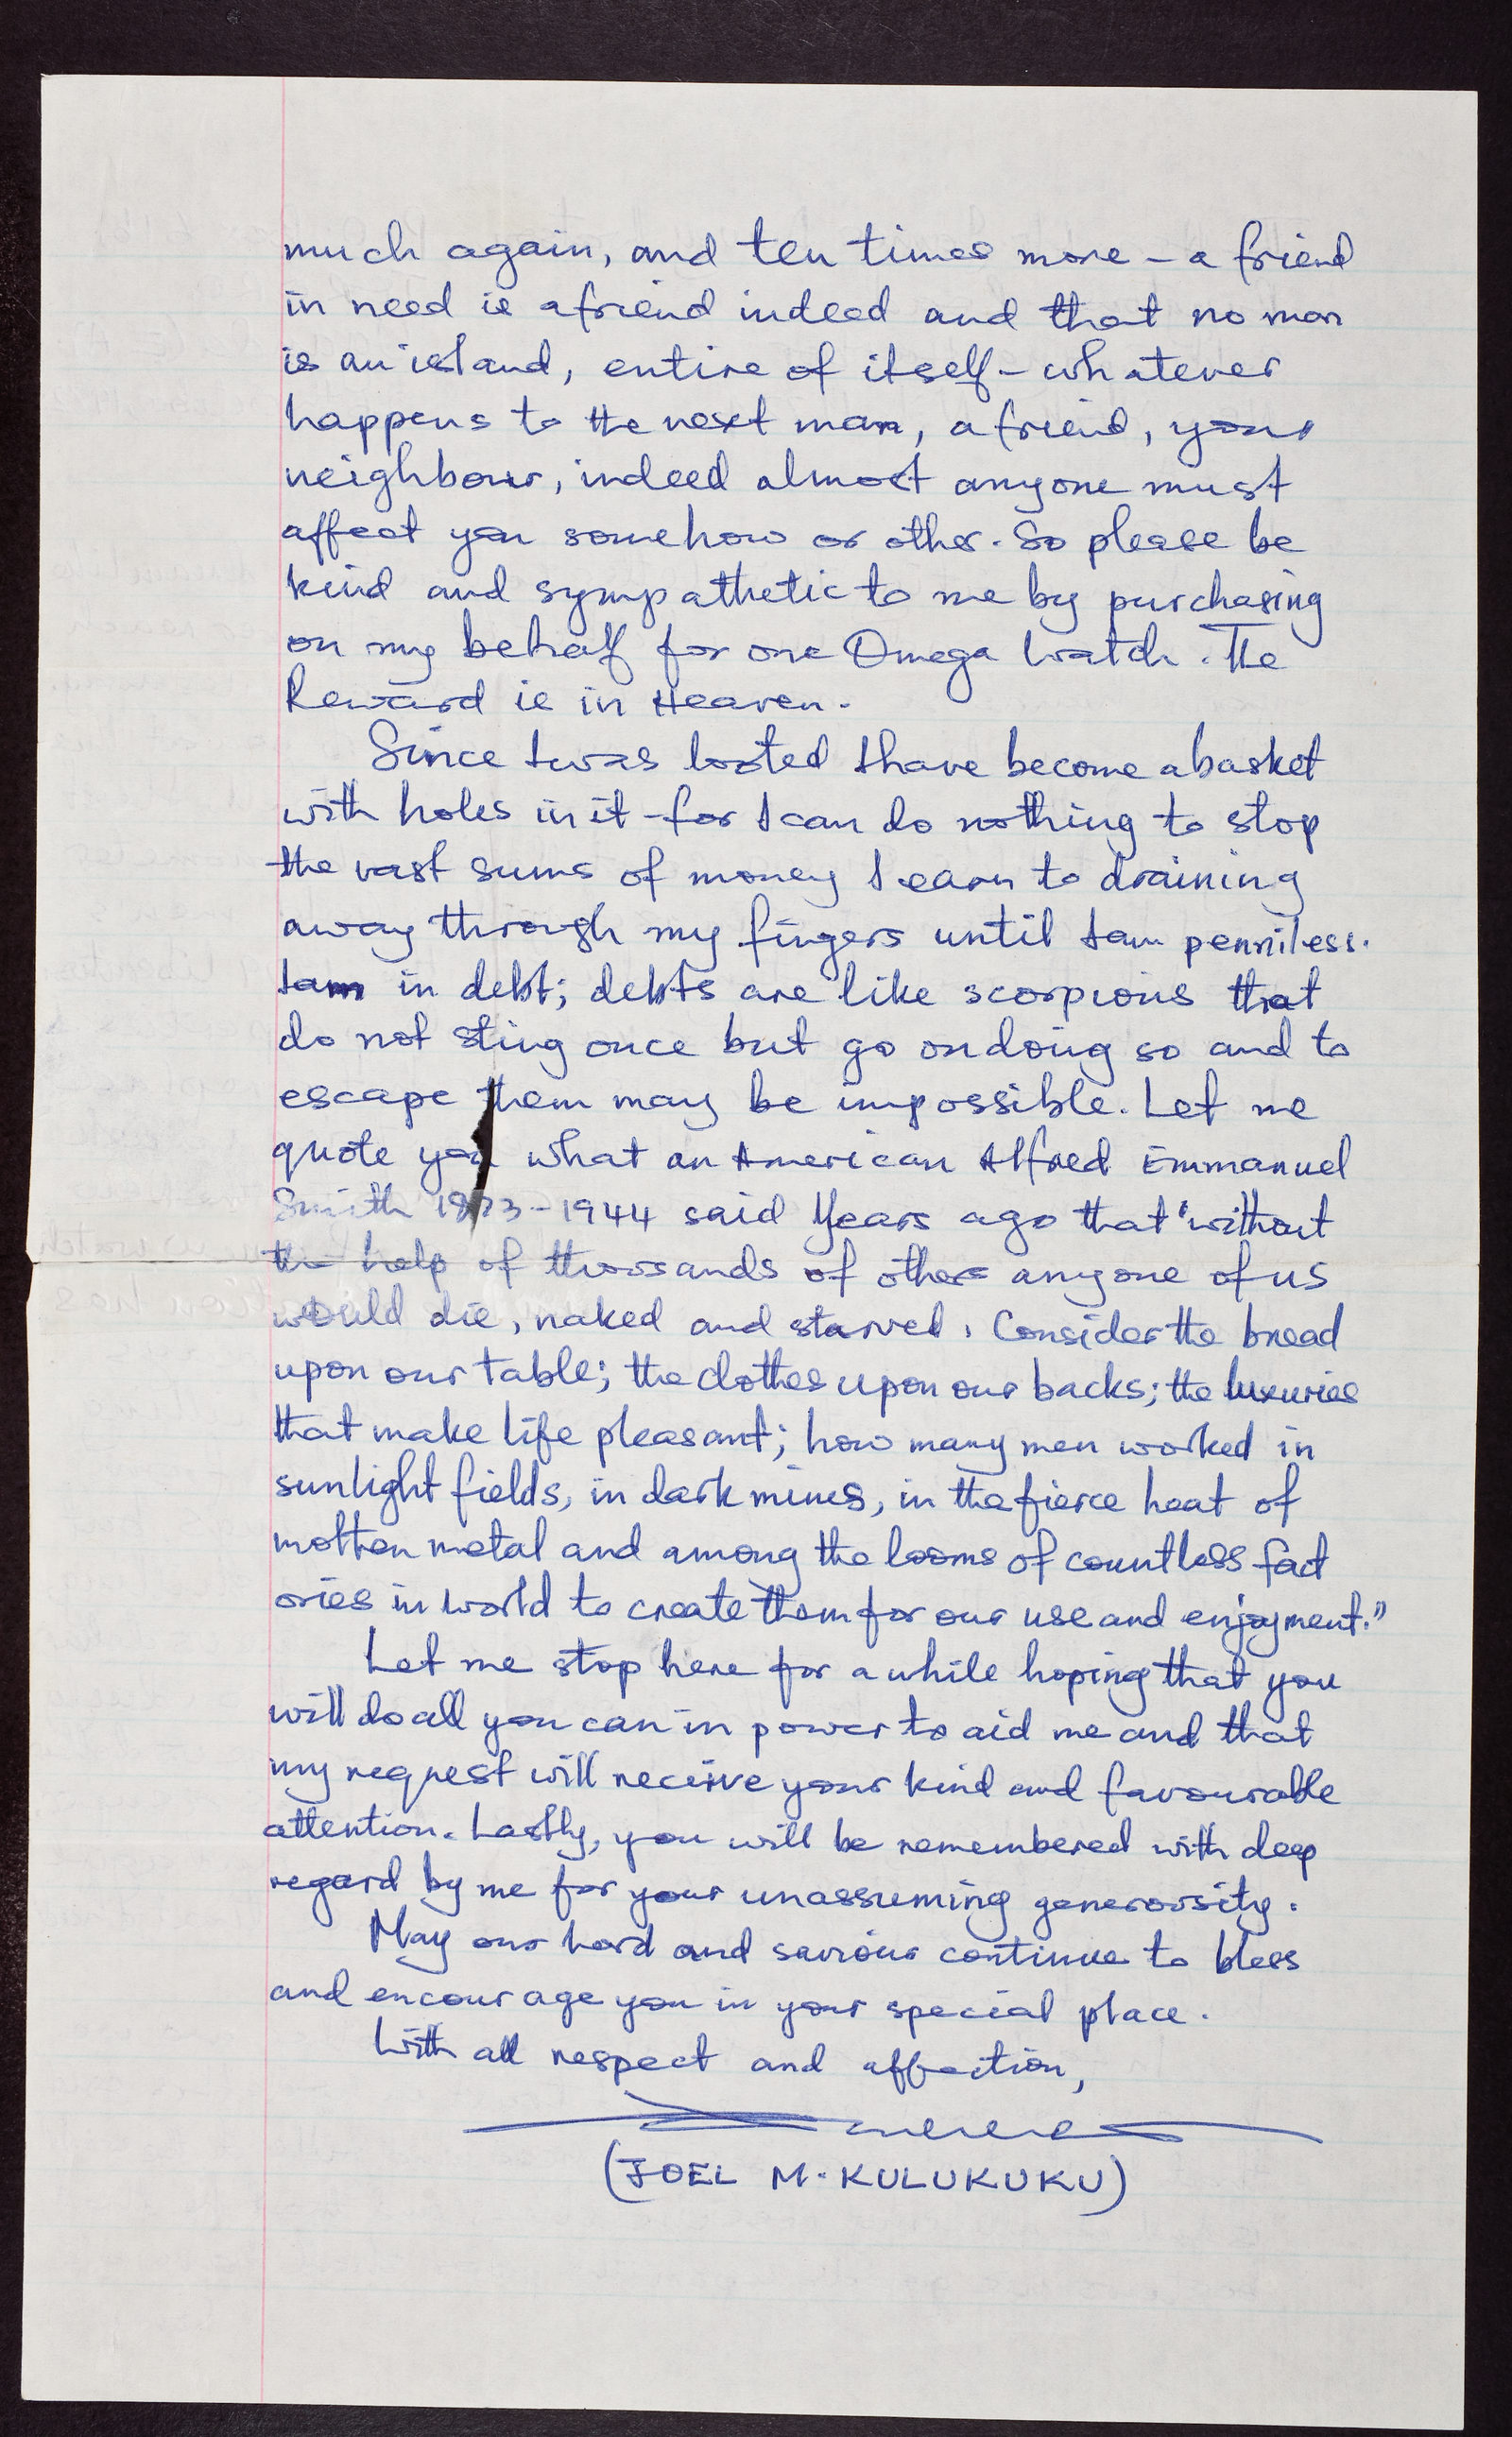 much again, and ten times more - a friend
in need is a friend indeed and that no man
is an island, entire of itself - whatever
happens to the next man, a friend, your
neighbour, indeed almost anyone must
affect you somehow or other. So please be
kind and sympathetic to me by purchasing
on my behalf for one Omega Watch. The
Reward is in Heaven.
Since I was looted I have become a basket
with holes in it - for I can do nothing to stop
the vast sums of money I earn to draining
away through my fingers until I am penniless.
I am in debt; debts are like scorpions that
do not sting once but go on doing so and to
escape them may be impossible. Let me
quote you what an American Alfred Emmanuel
Smith 1873-1944 said Years ago that "without
the help of thousands of others anyone of us
would die, naked and starved. Consider the bread
upon our table; the clothes upon our backs; the luxuries
that make life pleasant; how many men worked in
sunlight fields, in dark mines, in the fierce heat of
molten metal and among the looms of countless fact
ories in world to create them for our use and enjoyment."
Let me stop here for a while hoping that you
will do all you can in power to aid me and that
my request will receive your kind and favourable
attention. Lastly, you will be remembered with deep
regard by me for your unassuming generorsity.
May our Lord and saviour continue to bless
and encourage you in your special place.
With all respect and affection,
(JOEL M. KULUKUKU)